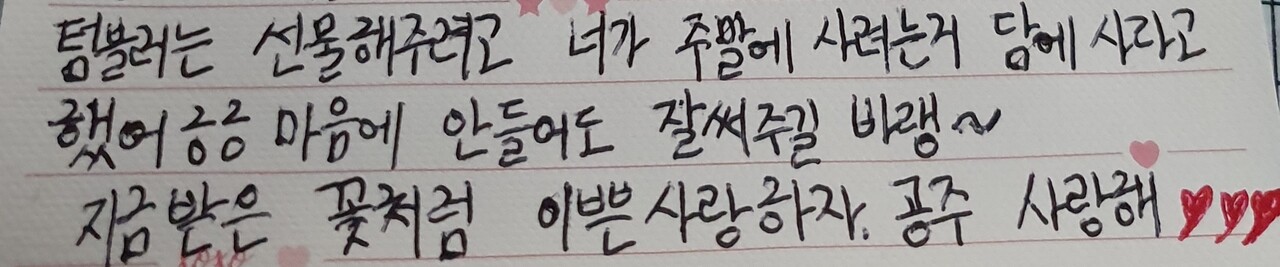 텀블러는 선물해주려고 너가 주말에 사려는거 담에 사라고
했어 ㅎㅎ 마음에 안들어도 잘써주길 바랭~
지금 받은 꽃처럼 이쁜 사랑하자. 공주 사랑해